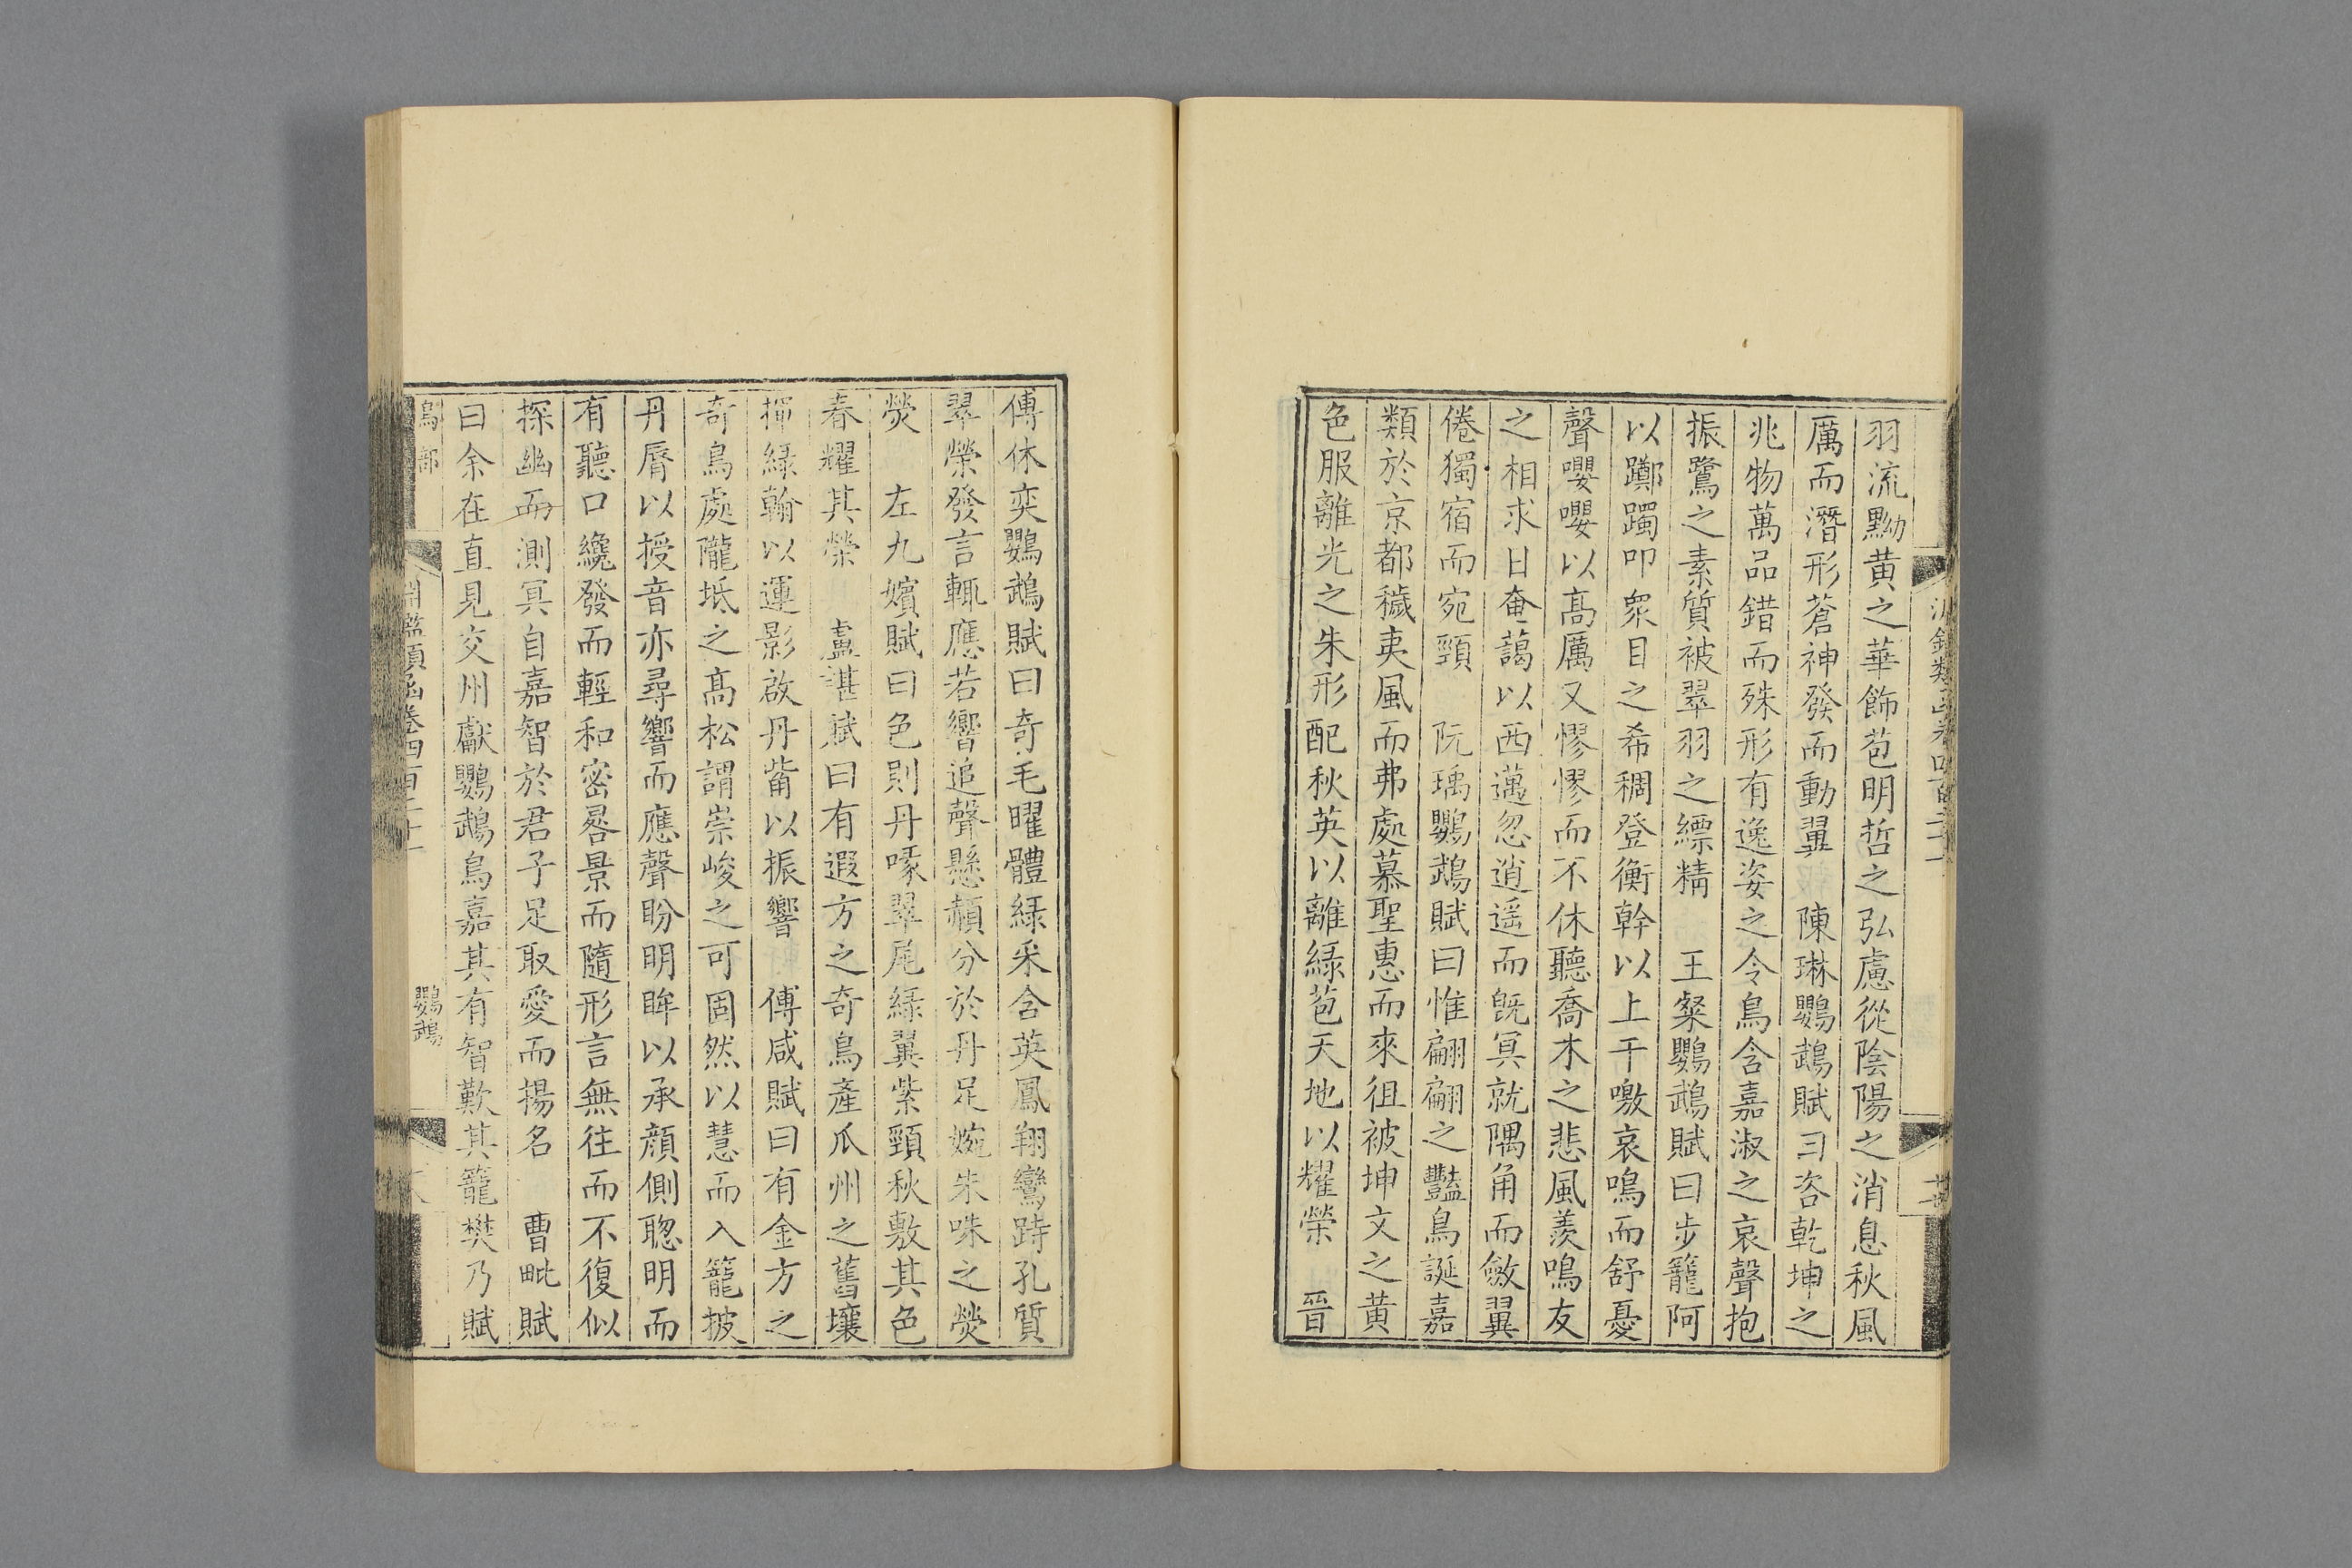 羽流黝黄之華飾苞明哲之弘慮從陰陽之消息秋風
厲而潛形蒼神發而動翼　陳琳鸚鵡賦曰咨乾坤之
兆物萬品錯而殊形有逸姿之令鳥含嘉淑之哀聲抱
振鷺之素質被翠羽之縹精　王粲鸚鵡賦曰步籠阿
以躑躅叩衆目之希稠登衡幹以上干噭哀鳴而舒憂
聲嚶嚶以高厲又憀憀而不休聽喬木之悲風羨鳴友
之相求日奄藹以西邁忽逍遥而旣冥就隅角而斂翼
倦獨宿而宛頸　阮瑀鸚鵡賦曰惟翩翩之豔鳥誕嘉
類於京都穢夷風而弗處慕聖惠而來徂被坤文之黄
色服離光之朱形配秋英以離緑苞天地以耀榮　晉
傅休奕鸚鵡賦曰奇毛曜體緑采含英鳳翔鸞跱孔質
翠榮發言輒應若響追聲懸頳分於丹足婉朱咮之熒
熒　左九嬪賦曰色則丹喙翠尾緑翼紫頸秋敷其色
春耀其榮　盧諶賦曰有遐方之奇鳥產瓜州之舊壤
揮緑翰以運影啟丹觜以振響　傅咸賦曰有金方之
奇鳥處隴坻之高松謂崇峻之可固然以慧而入籠披
丹脣以授音亦尋響而應聲盼明眸以承顔側聰明而
有聽口纔發而輕和密晷景而隨形言無往而不復似
探幽而測冥自嘉智於君子足取愛而揚名　曹毗賦
曰余在直見交州獻鸚鵡鳥嘉其有智歎其籠樊乃賦
鳥部　淵鑑類函卷四百二十一　鸚鵡